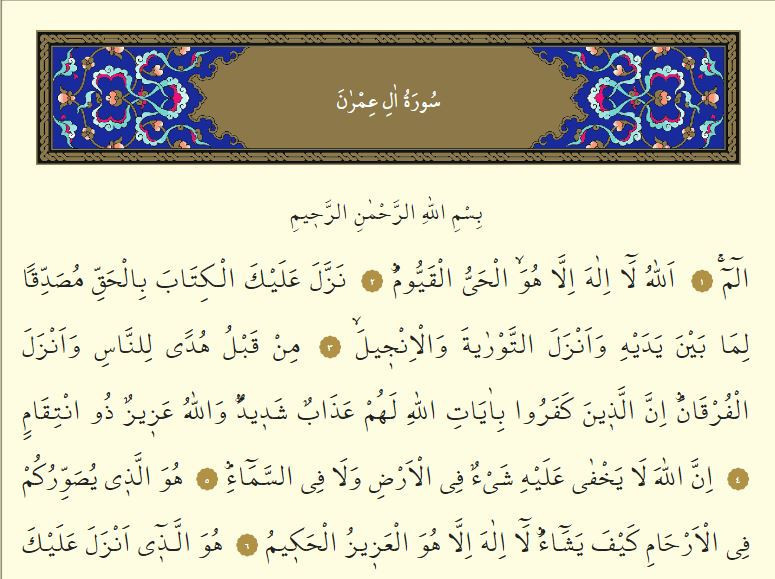 سُورَةُ اٰلِ عِمْرٰنَ
بِسْمِ اللّٰهِ الرَّحْمٰنِ الرَّح۪يمِ
الٓمٓۚ ﴿١﴾ اَللّٰهُ لَٓا اِلٰهَ اِلَّا هُوَۙ الْحَيُّ الْقَيُّومُۜ ﴿٢﴾ نَزَّلَ عَلَيْكَ الْكِتَابَ بِالْحَقِّ مُصَدِّقًا
لِمَا بَيْنَ يَدَيْهِ وَاَنْزَلَ التَّوْرٰيةَ وَالْاِنْج۪يلَۙ ﴿٣﴾ مِنْ قَبْلُ هُدًى لِلنَّاسِ وَاَنْزَلَ
الْفُرْقَانَۜ اِنَّ الَّذ۪ينَ كَفَرُوا بِاٰيَاتِ اللّٰهِ لَهُمْ عَذَابٌ شَد۪يدٌۜ وَاللّٰهُ عَز۪يزٌ ذُو انْتِقَامٍ
﴿٤﴾ اِنَّ اللّٰهَ لَا يَخْفٰى عَلَيْهِ شَيْءٌ فِي الْاَرْضِ وَلَا فِي السَّمَٓاءِۜ ﴿٥﴾ هُوَ الَّذ۪ي يُصَوِّرُكُمْ
فِي الْاَرْحَامِ كَيْفَ يَشَٓاءُۜ لَٓا اِلٰهَ اِلَّا هُوَ الْعَز۪يزُ الْحَك۪يمُ ﴿٦﴾ هُوَ الَّذ۪ٓي اَنْزَلَ عَلَيْكَ